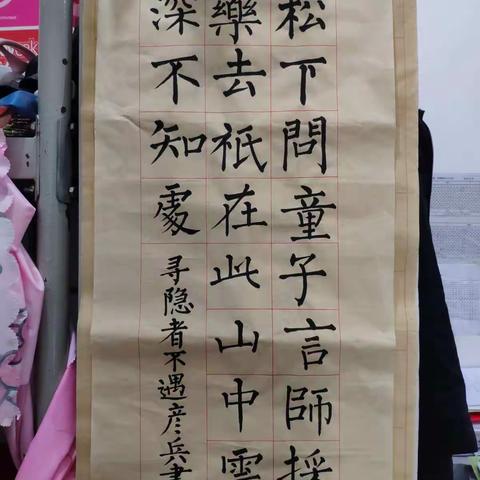 松下問童子言師採
藥去祇在此山中雲
深不知處
寻隐者不遇彦兵書